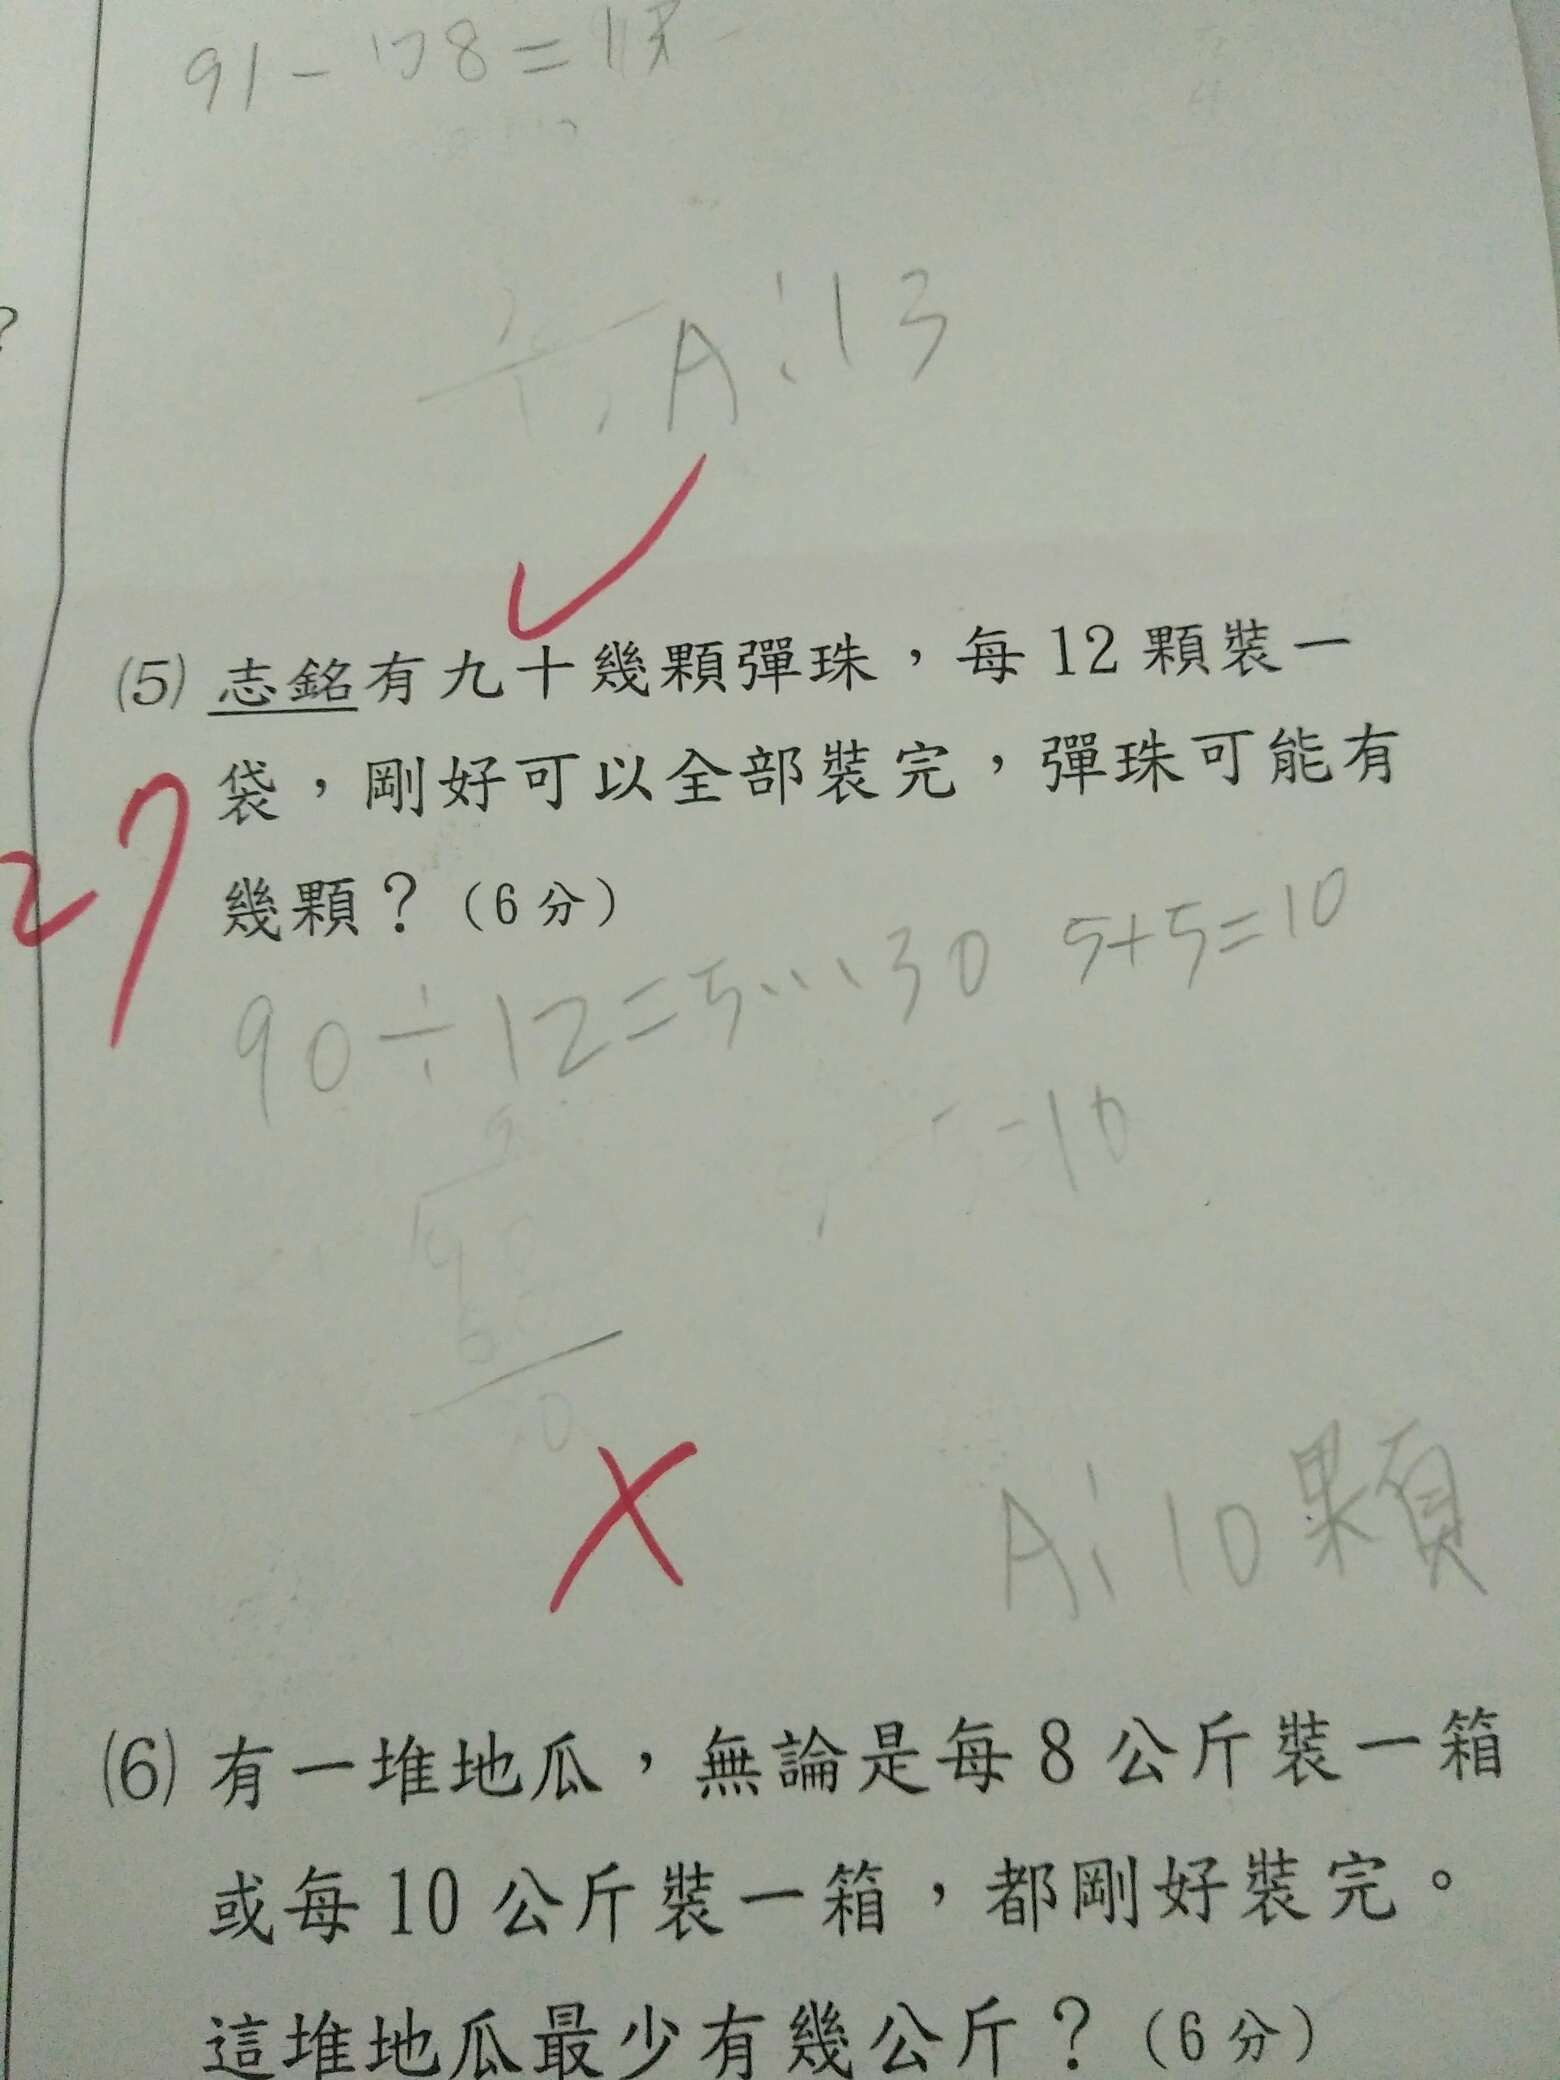 A:13
(5) 志銘有九十幾顆彈珠，每12顆裝一
袋，剛好可以全部裝完，彈珠可能有
幾顆？（6分）
90÷12=5…30 5+5=10
=10
A:10顆
(6) 有一堆地瓜，無論是每8公斤裝一箱
或每10公斤裝一箱，都剛好裝完。
這堆地瓜最少有幾公斤？（6分）